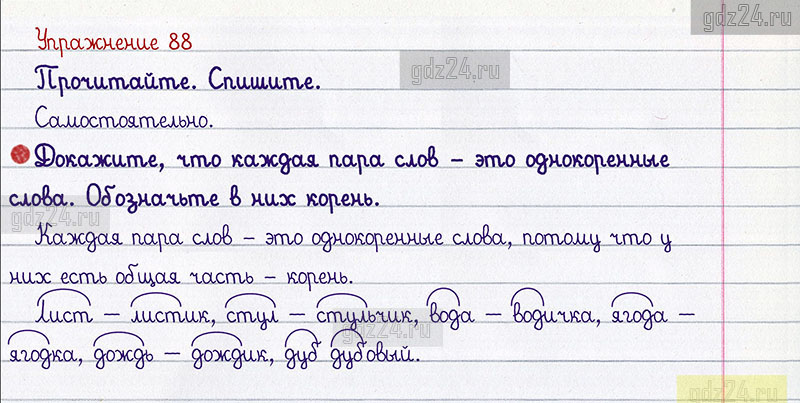 gdz24.ru
Упражнение 88
gdz24.ru
Прочитайте. Спишите.
Самостоятельно.
Докажите, что каждая пара слов – это однокоренные
слова. Обозначьте в них корень.
gdz24.ru
Каждая пара слов – это однокоренные слова, потому что у
них есть общая часть – корень.
Лист – листик, стул – стульчик, вода – водичка, ягода –
gdz24.ru
ягодка, дождь – дождик, дуб дубовый.
gdz24.ru